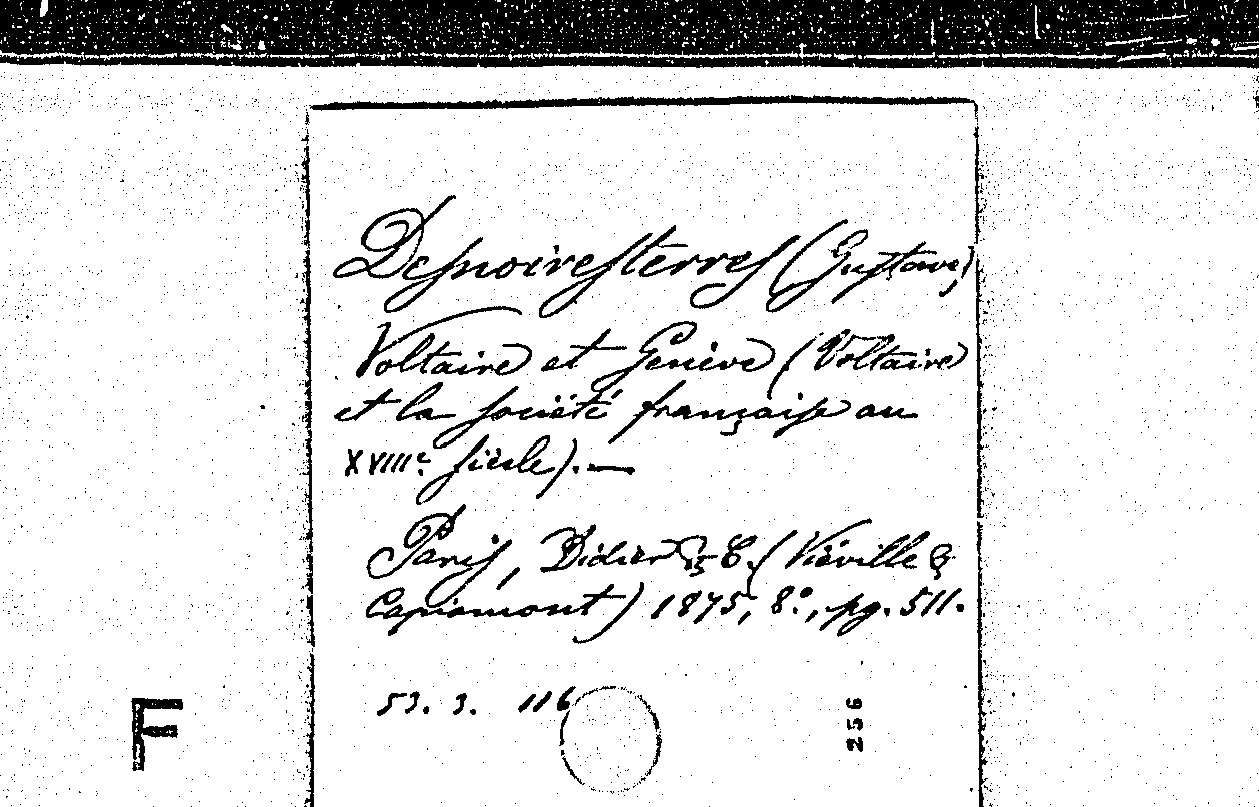 Desnoiresterres (Gustave)
Voltaire et Genève (Voltaire
et la société française au
XVIIIe siècle). —
Paris, Didier & C. (Viéville &
Capiomont) 1875, 8º, pg. 511.
53. 3. 116
256
F